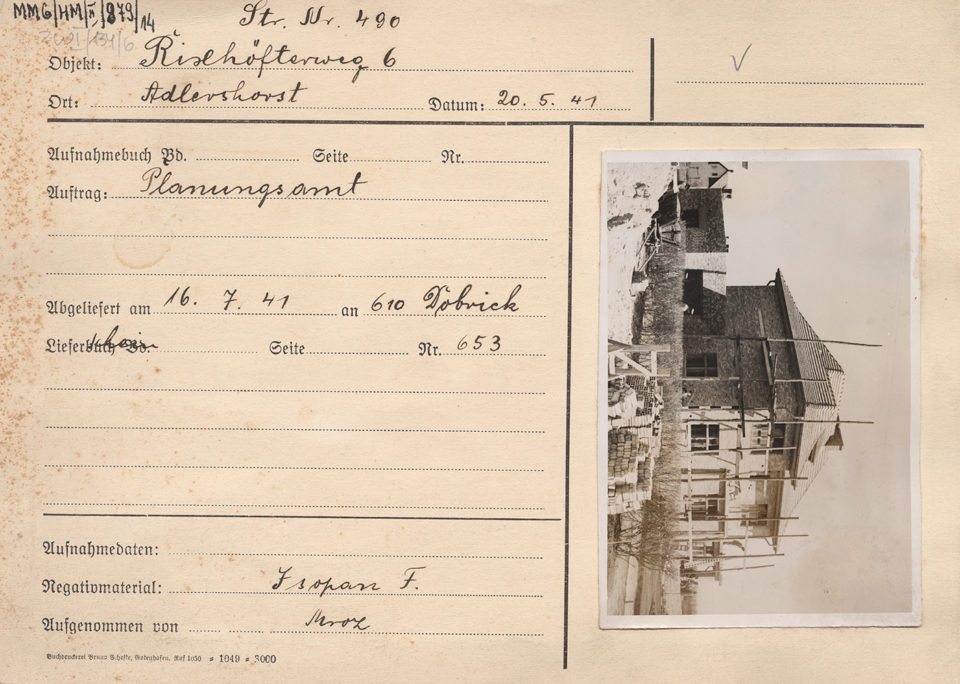 MMG/HM/II/879/14
Str. Nr. 490
Objekt: Rixhöfterweg 6
Ort: Adlershorst Datum: 20. 5. 41
Aufnahmebuch Bd. Seite Nr.
Auftrag: Planungsamt
Abgeliefert am 16. 7. 41 an 610 Döbrick
Lieferbuch Bd. schein Seite Nr. 653
Aufnahmedaten:
Negativmaterial: Isopan F.
Aufgenommen von Mroz
Buchdruckerei Bruno Scheffke, Gotenhafen. Ruf 1050 * 1049 * 3000